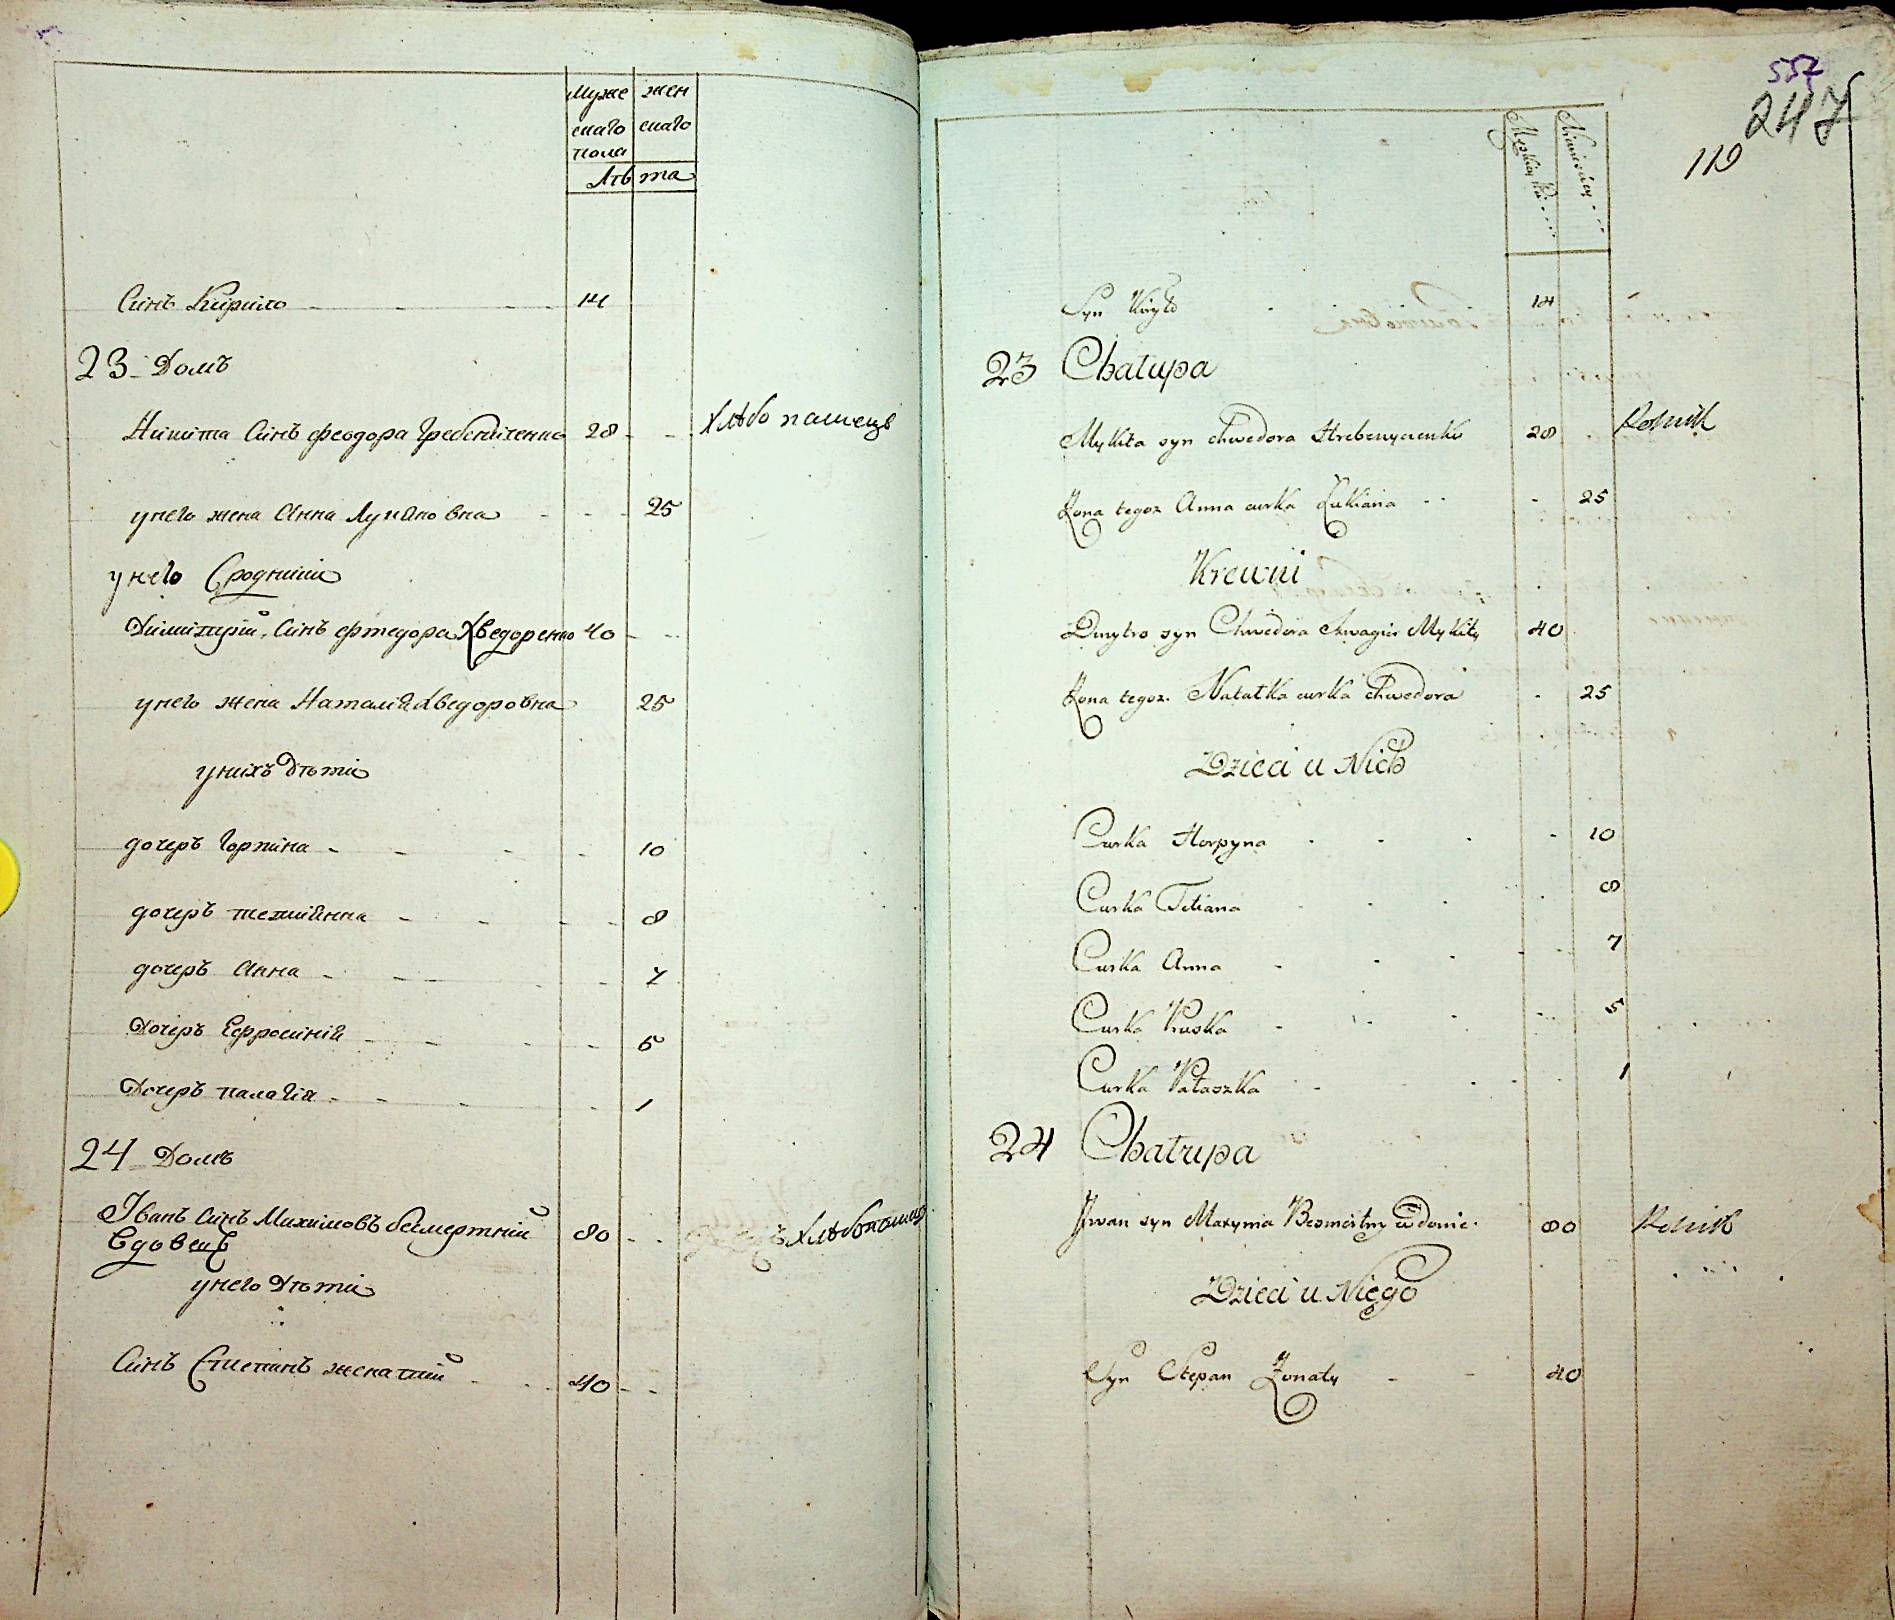 Муже
скаго
пола
жен
скаго
Лѣта
Синъ Кирило 14
23 Домъ
Никита Синъ феодора Гребениченко 28 хлѣбопашецъ
унего жена Анна Лукяновна 25
унего Сродники
Димитрій Синъ фтедора Хведоренко 40
унего жена Наталія Хведоровна 25
унихъ Дѣти
дочеръ Горпина 10
дочеръ тетиянна 8
дочеръ Анна 7
Дочеръ Ефросинія 5
Дочеръ палагія 1
24 Домъ
Іванъ Синъ Максимовъ безмертній 80 Хлѣбопашец
Вдовецъ
унего Дѣти
Синъ Степанъ женатій 40
557
247
119
Syn Kiryło 14
23 Chałupa
Mykita syn Chwedora Hrebenyczenko 28 Rolnik
Żona tegoż Anna curka Łukiana 25
Krewni
Dmytro syn Chwedora szwagier Mykity 40
Żona tegoż Natałka curka Chwedora 25
Dzieci u Nich
Curka Horpyna 10
Curka Tetiana 8
Curka Anna 7
Curka Pruska 5
Curka Pałaszka 1
24 Chałupa
Iwan syn Maxyma Besmertny wdowiec 80 Rolnik
Dzieci u Niego
Syn Stepan Żonaty 40